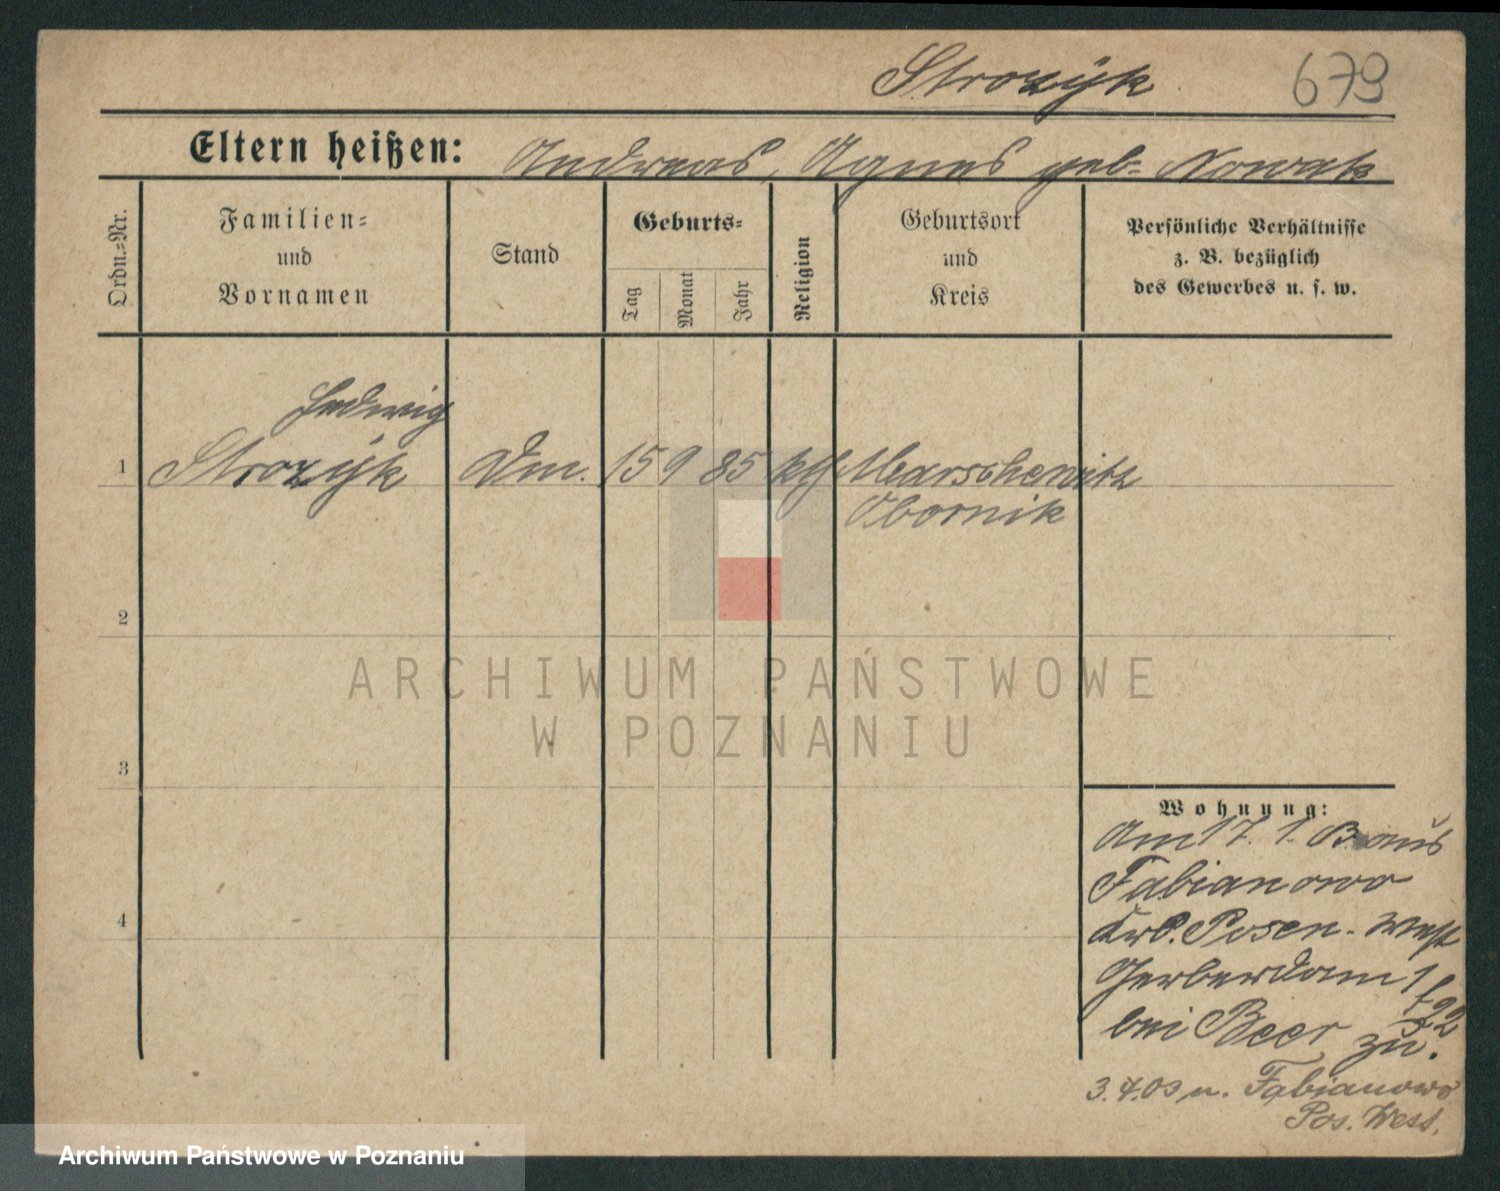 Strozÿk 679
Eltern heißen: Andreas, Agnes geb. Nowak
Ordn.=Nr.
Familien=
und
Vornamen
Stand
Geburts=
Tag
Monat
Jahr
Religion
Geburtsort
und
Kreis
Persönliche Verhältnisse
z. B. bezüglich
des Gewerbes u. s. w.
Hedwig
1 Strozÿk 15 9 85 kth Marschewitz
Obornik
2
3
4
Wohnung:
Am 17. 1. aus
Fabianowo
Krs. Posen-West
Gerberdam 1
bei Beer zu.
3.4.03 n. Fabianowo
Pos. West.
ARCHIWUM PAŃSTWOWE
W POZNANIU
Archiwum Państwowe w Poznaniu